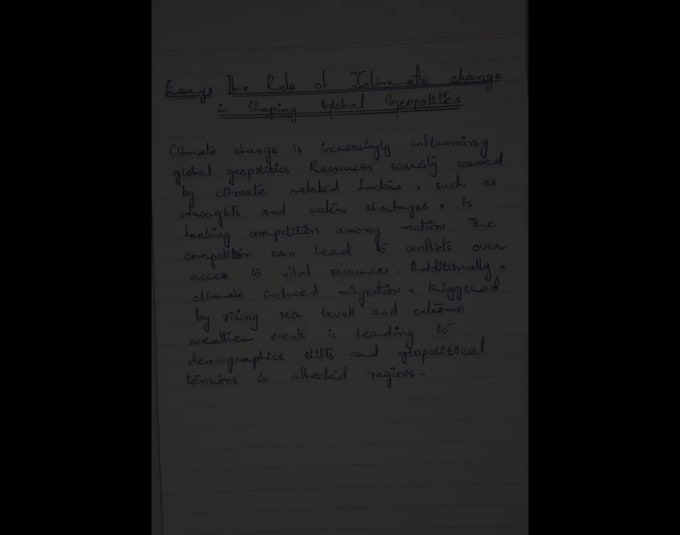 Essay: The Role of Climate change
in Shaping Global Geopolitics.
Climate change is increasingly influencing
global geopolitics. Resources scarcity caused
by climate related factors, such as
droughts and water shortages, is
fueling competition among nations. The
competition can lead to conflicts over
access to vital resources. Additionally,
climate induced migration, triggered
by rising sea levels and extreme
weather events is leading to
demographics shifts and geopolitical
tensions in affected regions.